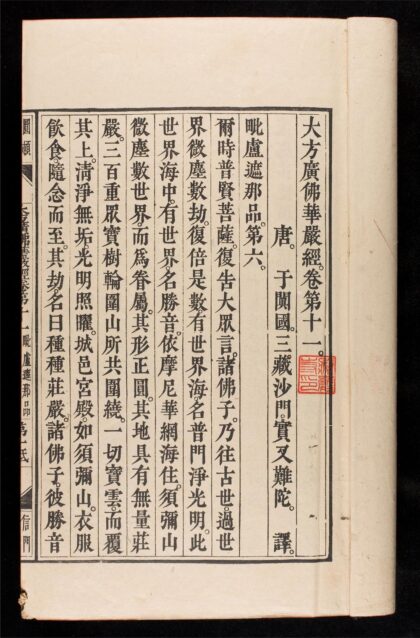 大方廣佛華嚴經。卷第十一。
唐。于闐國。三藏沙門。實叉難陀。譯。
毗盧遮那品。第六。
爾時普賢菩薩。復告大眾言。諸佛子。乃往古世。過世
界微塵數劫。復倍是數。有世界海名普門淨光明。此
世界海中。有世界名勝音。依摩尼華網海住。須彌山
微塵數世界。而爲眷屬。其形正圓。其地具有無量莊
嚴。三百重眾寶樹輪圍山所共圍繞。一切寶雲。而覆
其上。清淨無垢。光明照曜。城邑宮殿。如須彌山。衣服
飲食。隨念而至。其劫名曰種種莊嚴。諸佛子。彼勝音
大方廣佛華嚴經卷第十一 毗盧遮那品